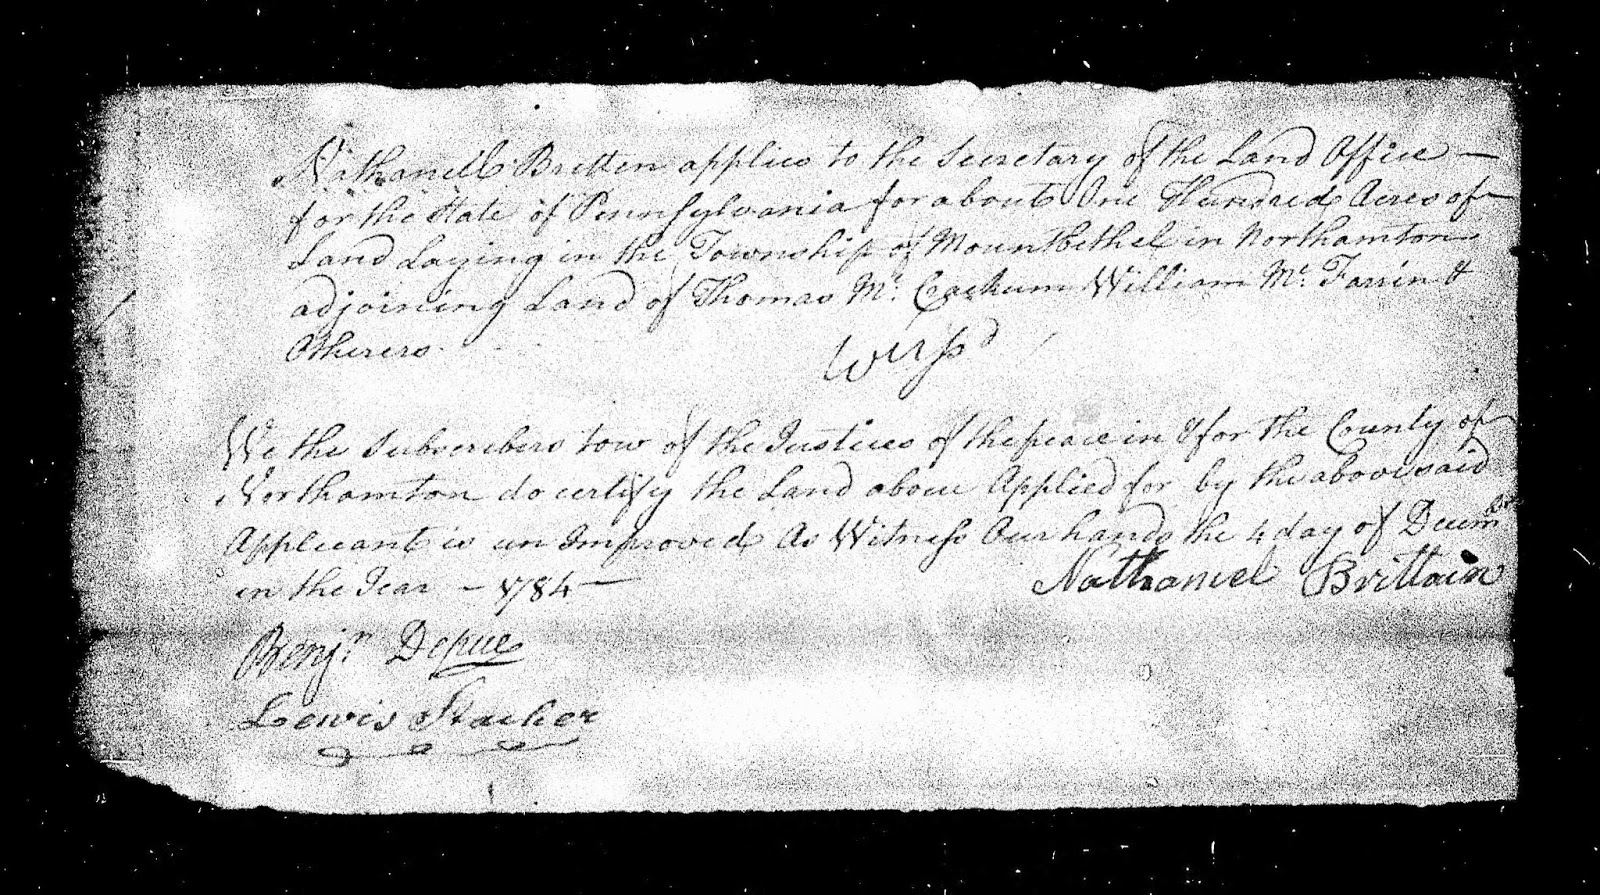 Nathaniel Britten applies to the Secretary of the Land Office —
for the State of Pennsylvania for about One Hundred Acres of
Land Laying in the Township of Mountbethel in Northamton
adjoining Land of Thomas Mc. Cackum William Mc. Farrin &
Otherers.
We the Subscribers tow of the Justices of the peace in & for the County of
Northamton do certify the Land above Applied for by the above said
Applicant is un Improved As Witness Our hands the 4 day of Decembr
in the Year — 1784 —
Nathaniel Brittain
Benjn. Depue
Lewis Stacher